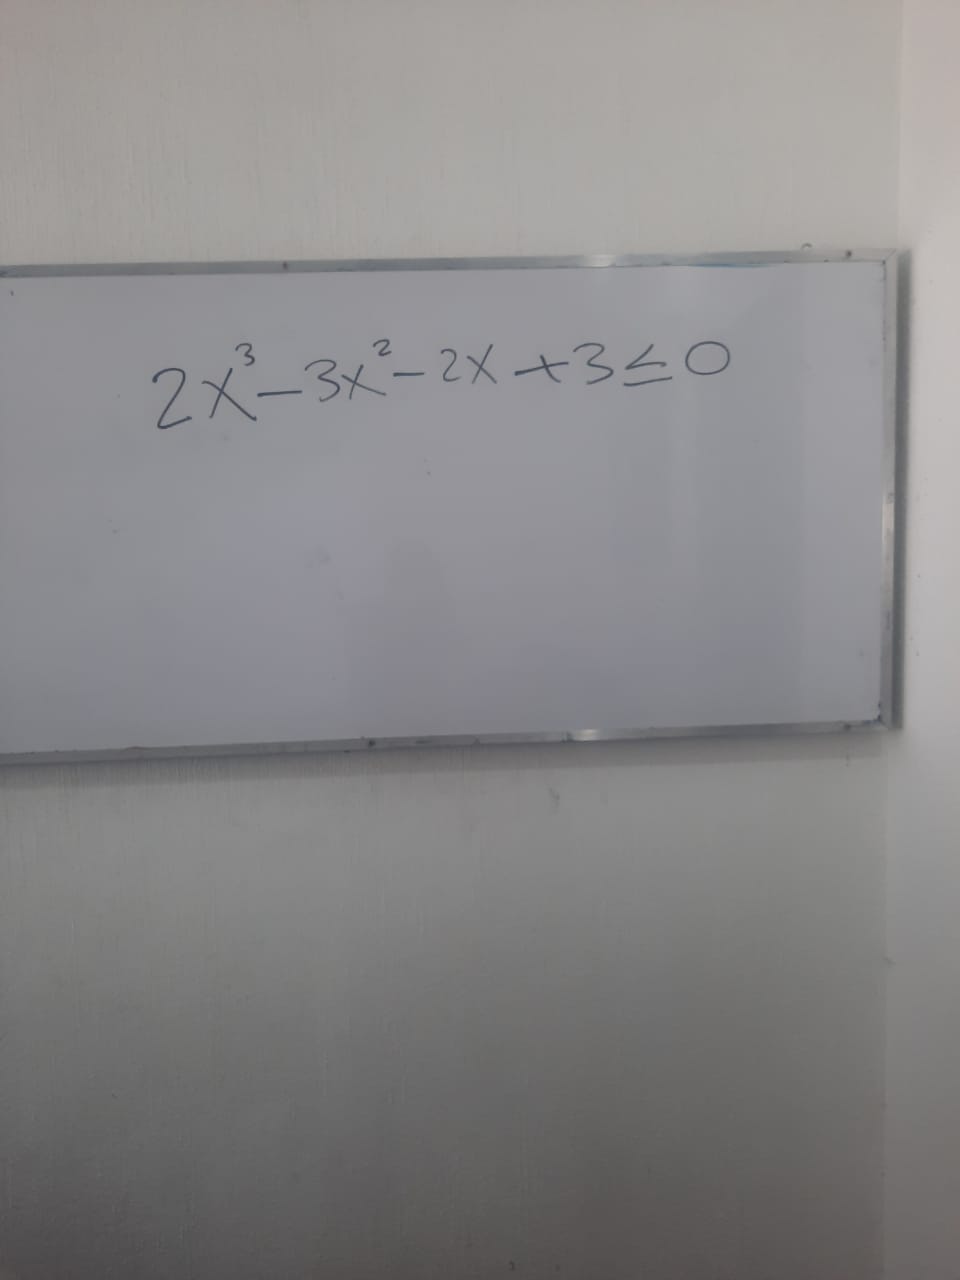 2x³-3x²-2x+3≤0